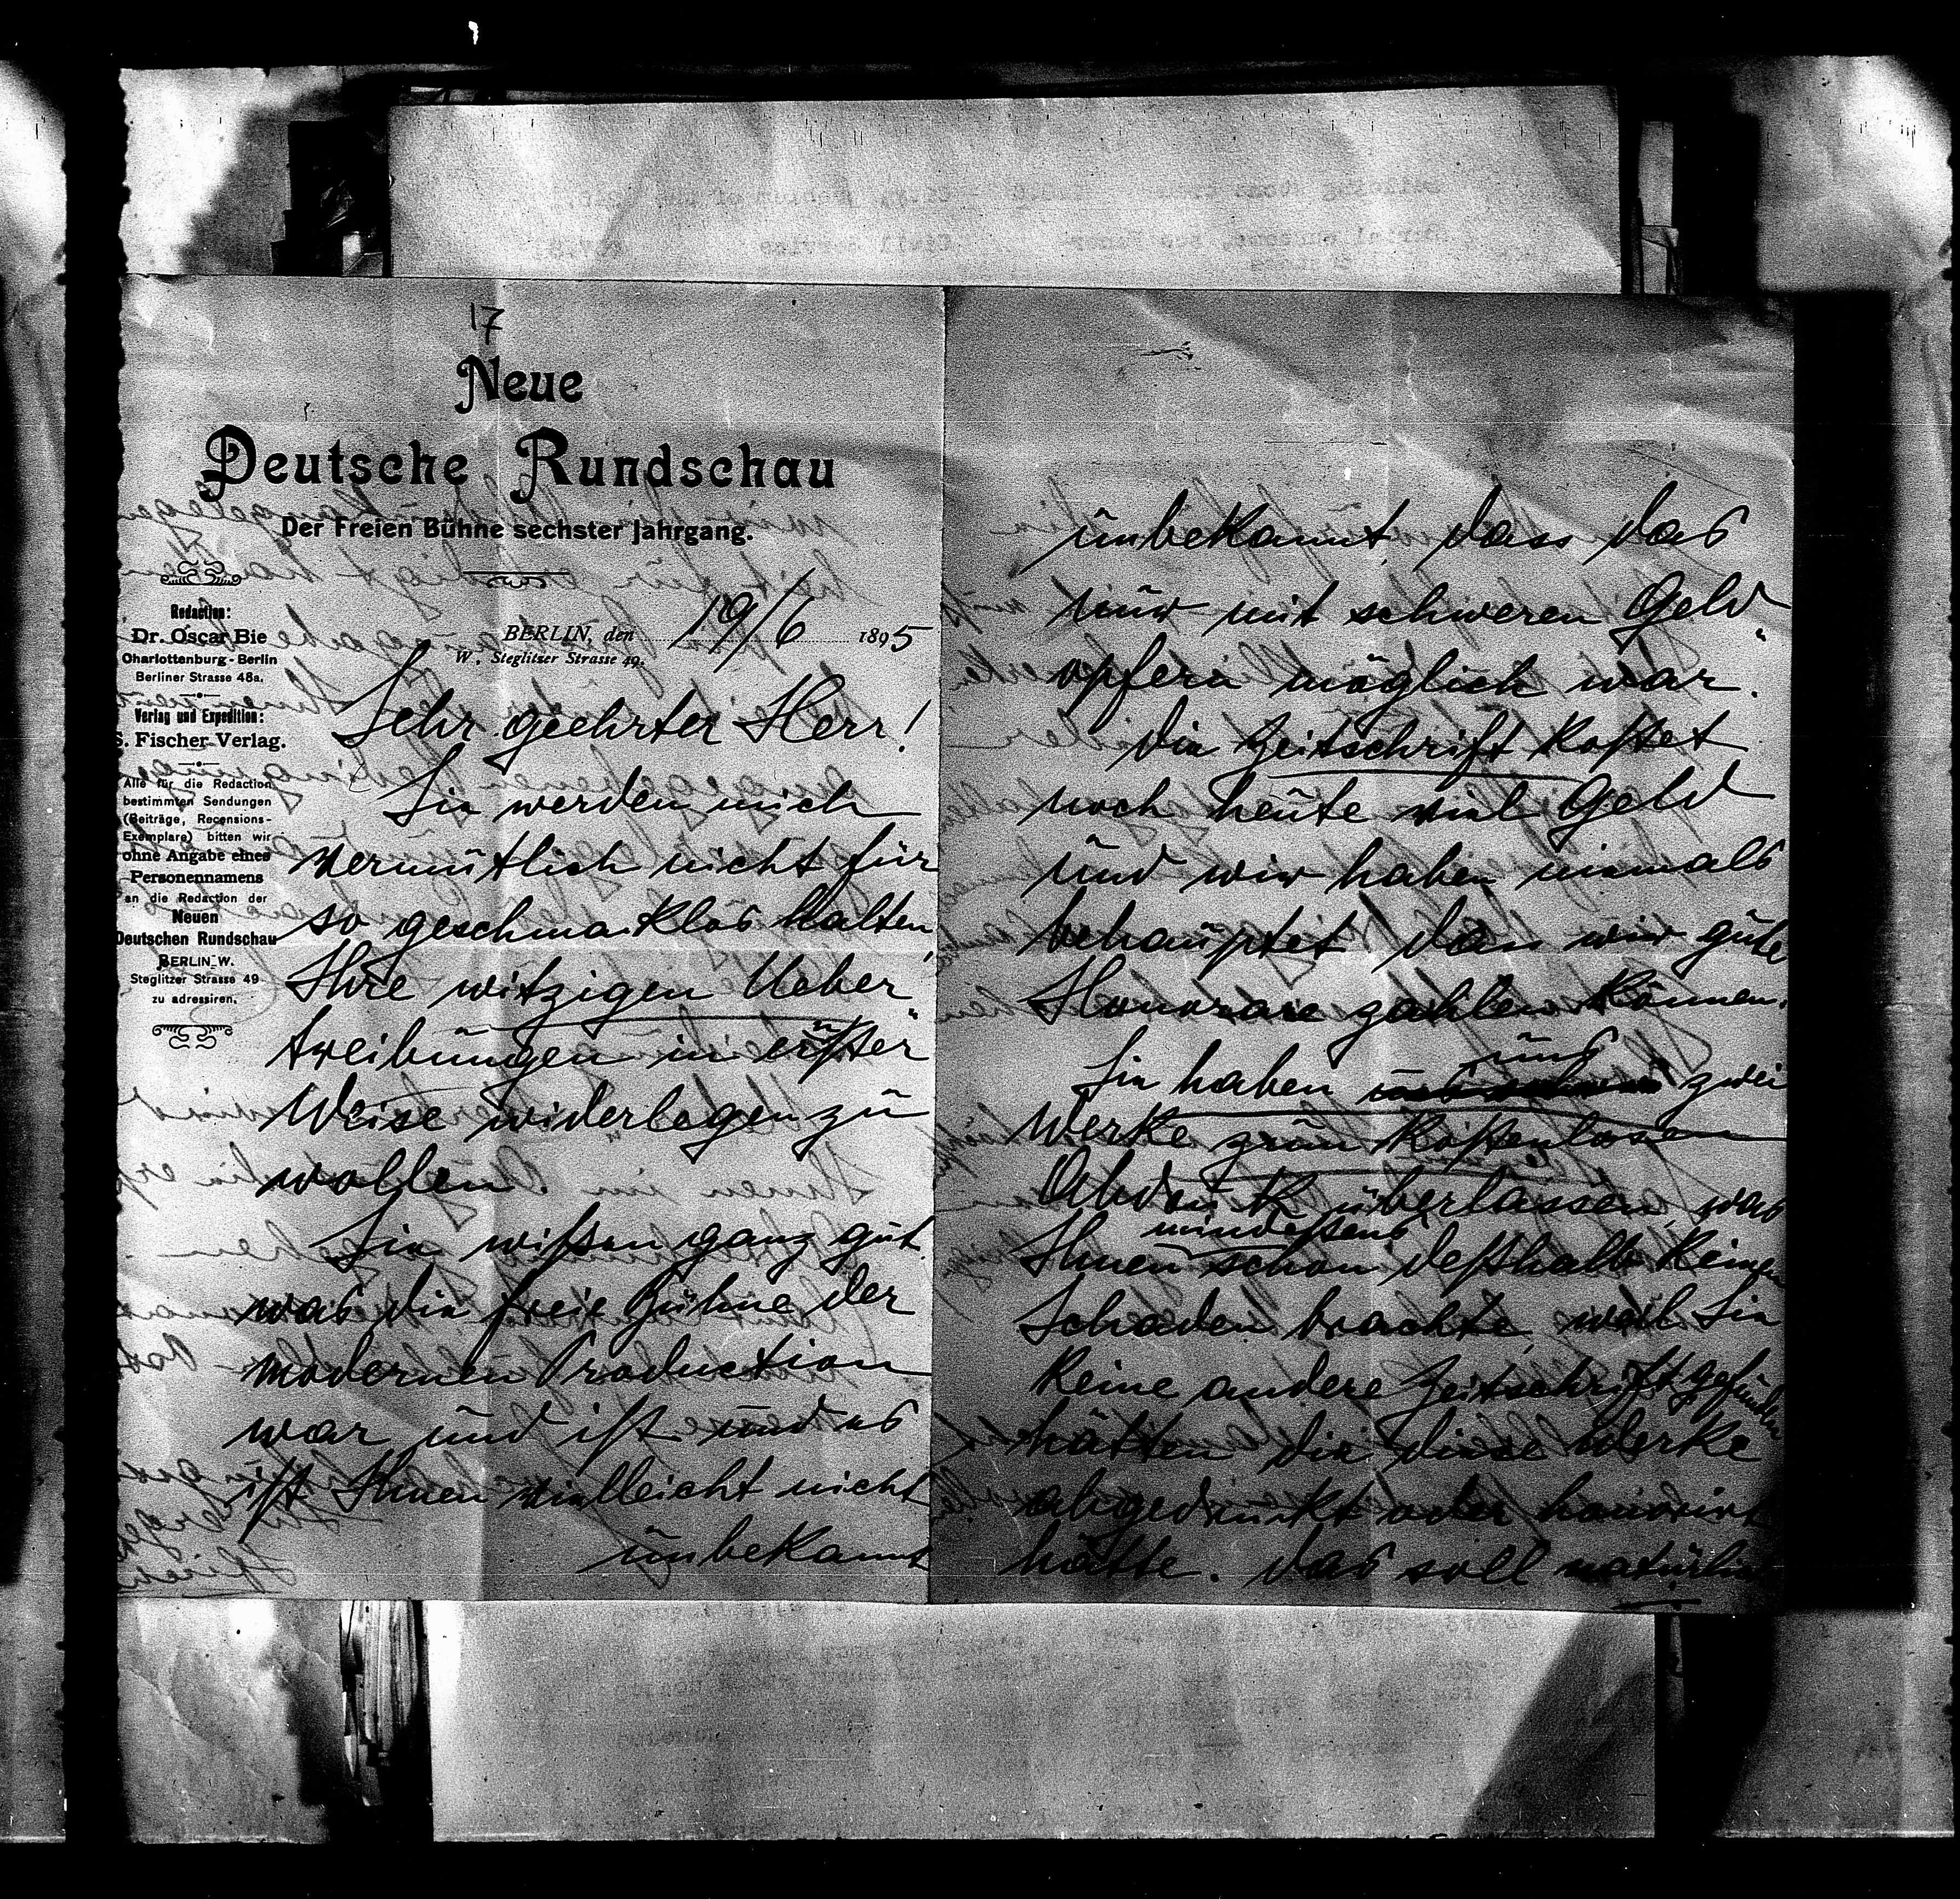 17
Neue
Deutsche Rundschau
Der Freien Bühne sechster Jahrgang.
Redaction:
Dr. Oscar Bie
Charlottenburg-Berlin
Berliner Strasse 48a.
Verlag und Expedition:
S. Fischer Verlag.
Alle für die Redaction
bestimmten Sendungen
(Beiträge, Recensions-
Exemplare) bitten wir
ohne Angabe eines
Personennamens
an die Redaction der
Neuen
Deutschen Rundschau
BERLIN W.
Steglitzer Strasse 49
zu adressiren.
BERLIN, den 19/6 1895
W. Steglitzer Strasse 49.
Sehr geehrter Herr!
Sie werden mich
vermutlich nicht für
so geschmacklos halten
Ihre witzigen Ueber-
treibungen in ernster
Weise widerlegen zu
wollen.
Sie wissen ganz gut
was die freie Bühne der
modernen Production
war und ist und es
ist Ihnen vielleicht nicht
unbekannt
unbekannt dass das
nur mit schweren Geld-
opfern möglich war.
Die Zeitschrift kostet
noch heute viel Geld
und wir haben niemals
behauptet dass wir gute
Honorare zahlen können.
Sie haben uns zwei
Werke zum kostenlosen
Abdruck überlassen, was
Ihnen mindestens schon desshalb keinen
Schaden brachte, weil Sie
keine andere Zeitschrift gefunden
hätten die diese Werke
abgedruckt oder honorirt
hätte. Das soll natürlich